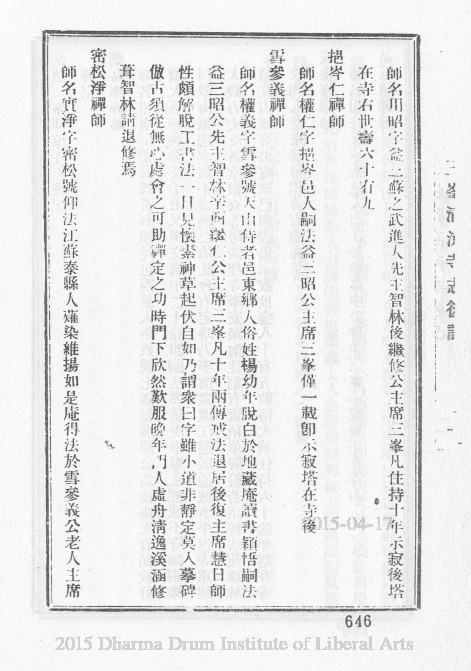 三峯清涼寺志後記
師名川昭字益三蘇之武進人先主智林後繼修公主席三峯凡住持十年示寂後塔
在寺右世壽六十有九
挹岑仁禪師
師名權仁字挹岑邑人嗣法益三昭公主席三峯僅一載卽示寂塔在寺後
雪參義禪師
師名權義字雪參號天山侍者邑東鄉人俗姓楊幼年脫白於地藏庵讀書穎悟嗣法
益三昭公先主智林辛酉繼仁公主席三峯凡十年兩傳戒法退居後復主席慧日師
性頗解脫工書法一日見懷素神草起伏自如乃謂衆曰字雖小道非靜定莫入摹碑
倣古須從無心處會之可助禪定之功時門下欣然歎服晚年門人虛舟淸逸溪涵修
葺智林請退修焉
密松淨禪師
師名實淨字密松號仰法江蘇泰縣人薙染維揚如是庵得法於雪參義公老人主席
646
2015-04-17
2015 Dharma Drum Institute of Liberal Arts